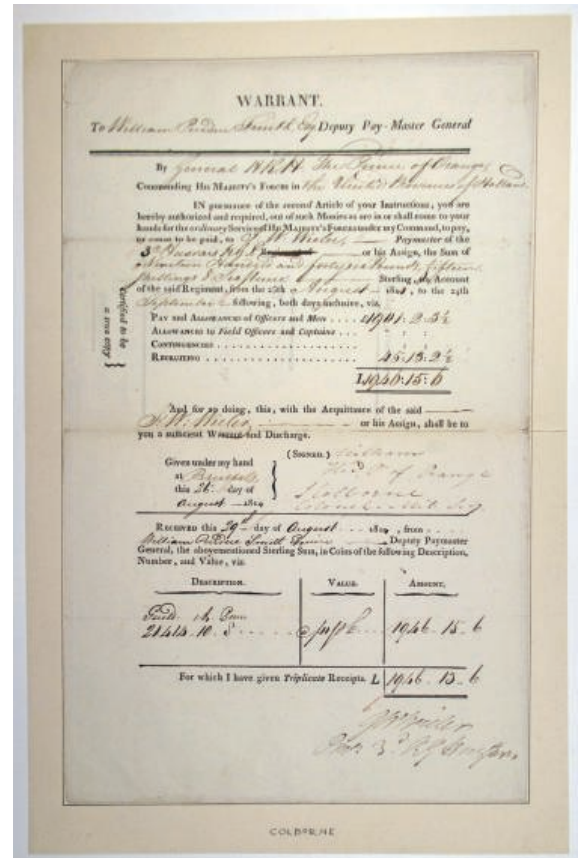 WARRANT.
To William Esq Deputy Pay-Master General
By General H.R.H. The Prince of Orange
Commanding His Majesty's Forces in the United Provinces of Holland
IN pursuance of the second Article of your Instructions, you are
hereby authorized and required, out of such Monies as are in or shall come to your
hands for the ordinary Services of His Majesty's Forces under my Command, to pay,
or cause to be paid, to Paymaster of the
3d Hussars K.G.L. or his Assign, the Sum of
nineteen Hundred and forty six Pounds, fifteen
Shillings & Sixpence Sterling, on Account
of the said Regiment, from the 25th August to the 24th
September following, both days inclusive, viz.
Pay and Allowances of Officers and Men
Allowances to Field Officers and Captains
Contingencies
Recruiting
£1946:15:6
certified to be
a true copy
And for so doing, this, with the Acquittance of the said
or his Assign, shall be to
you a sufficient Warrant and Discharge.
Given under my hand
at Brussels
this 26 day of
August
(Signed) William
of Orange
Colborne
Colonel Mil Sec
Received this 29th day of August from
William Deputy Paymaster
General, the abovementioned Sterling Sum, in Coins of the following Description,
Number, and Value, viz.
Description. Value. Amount.
1946-15-6
For which I have given Triplicate Receipts. L 1946-15-6
3d K.G. Hussars
COLBORNE